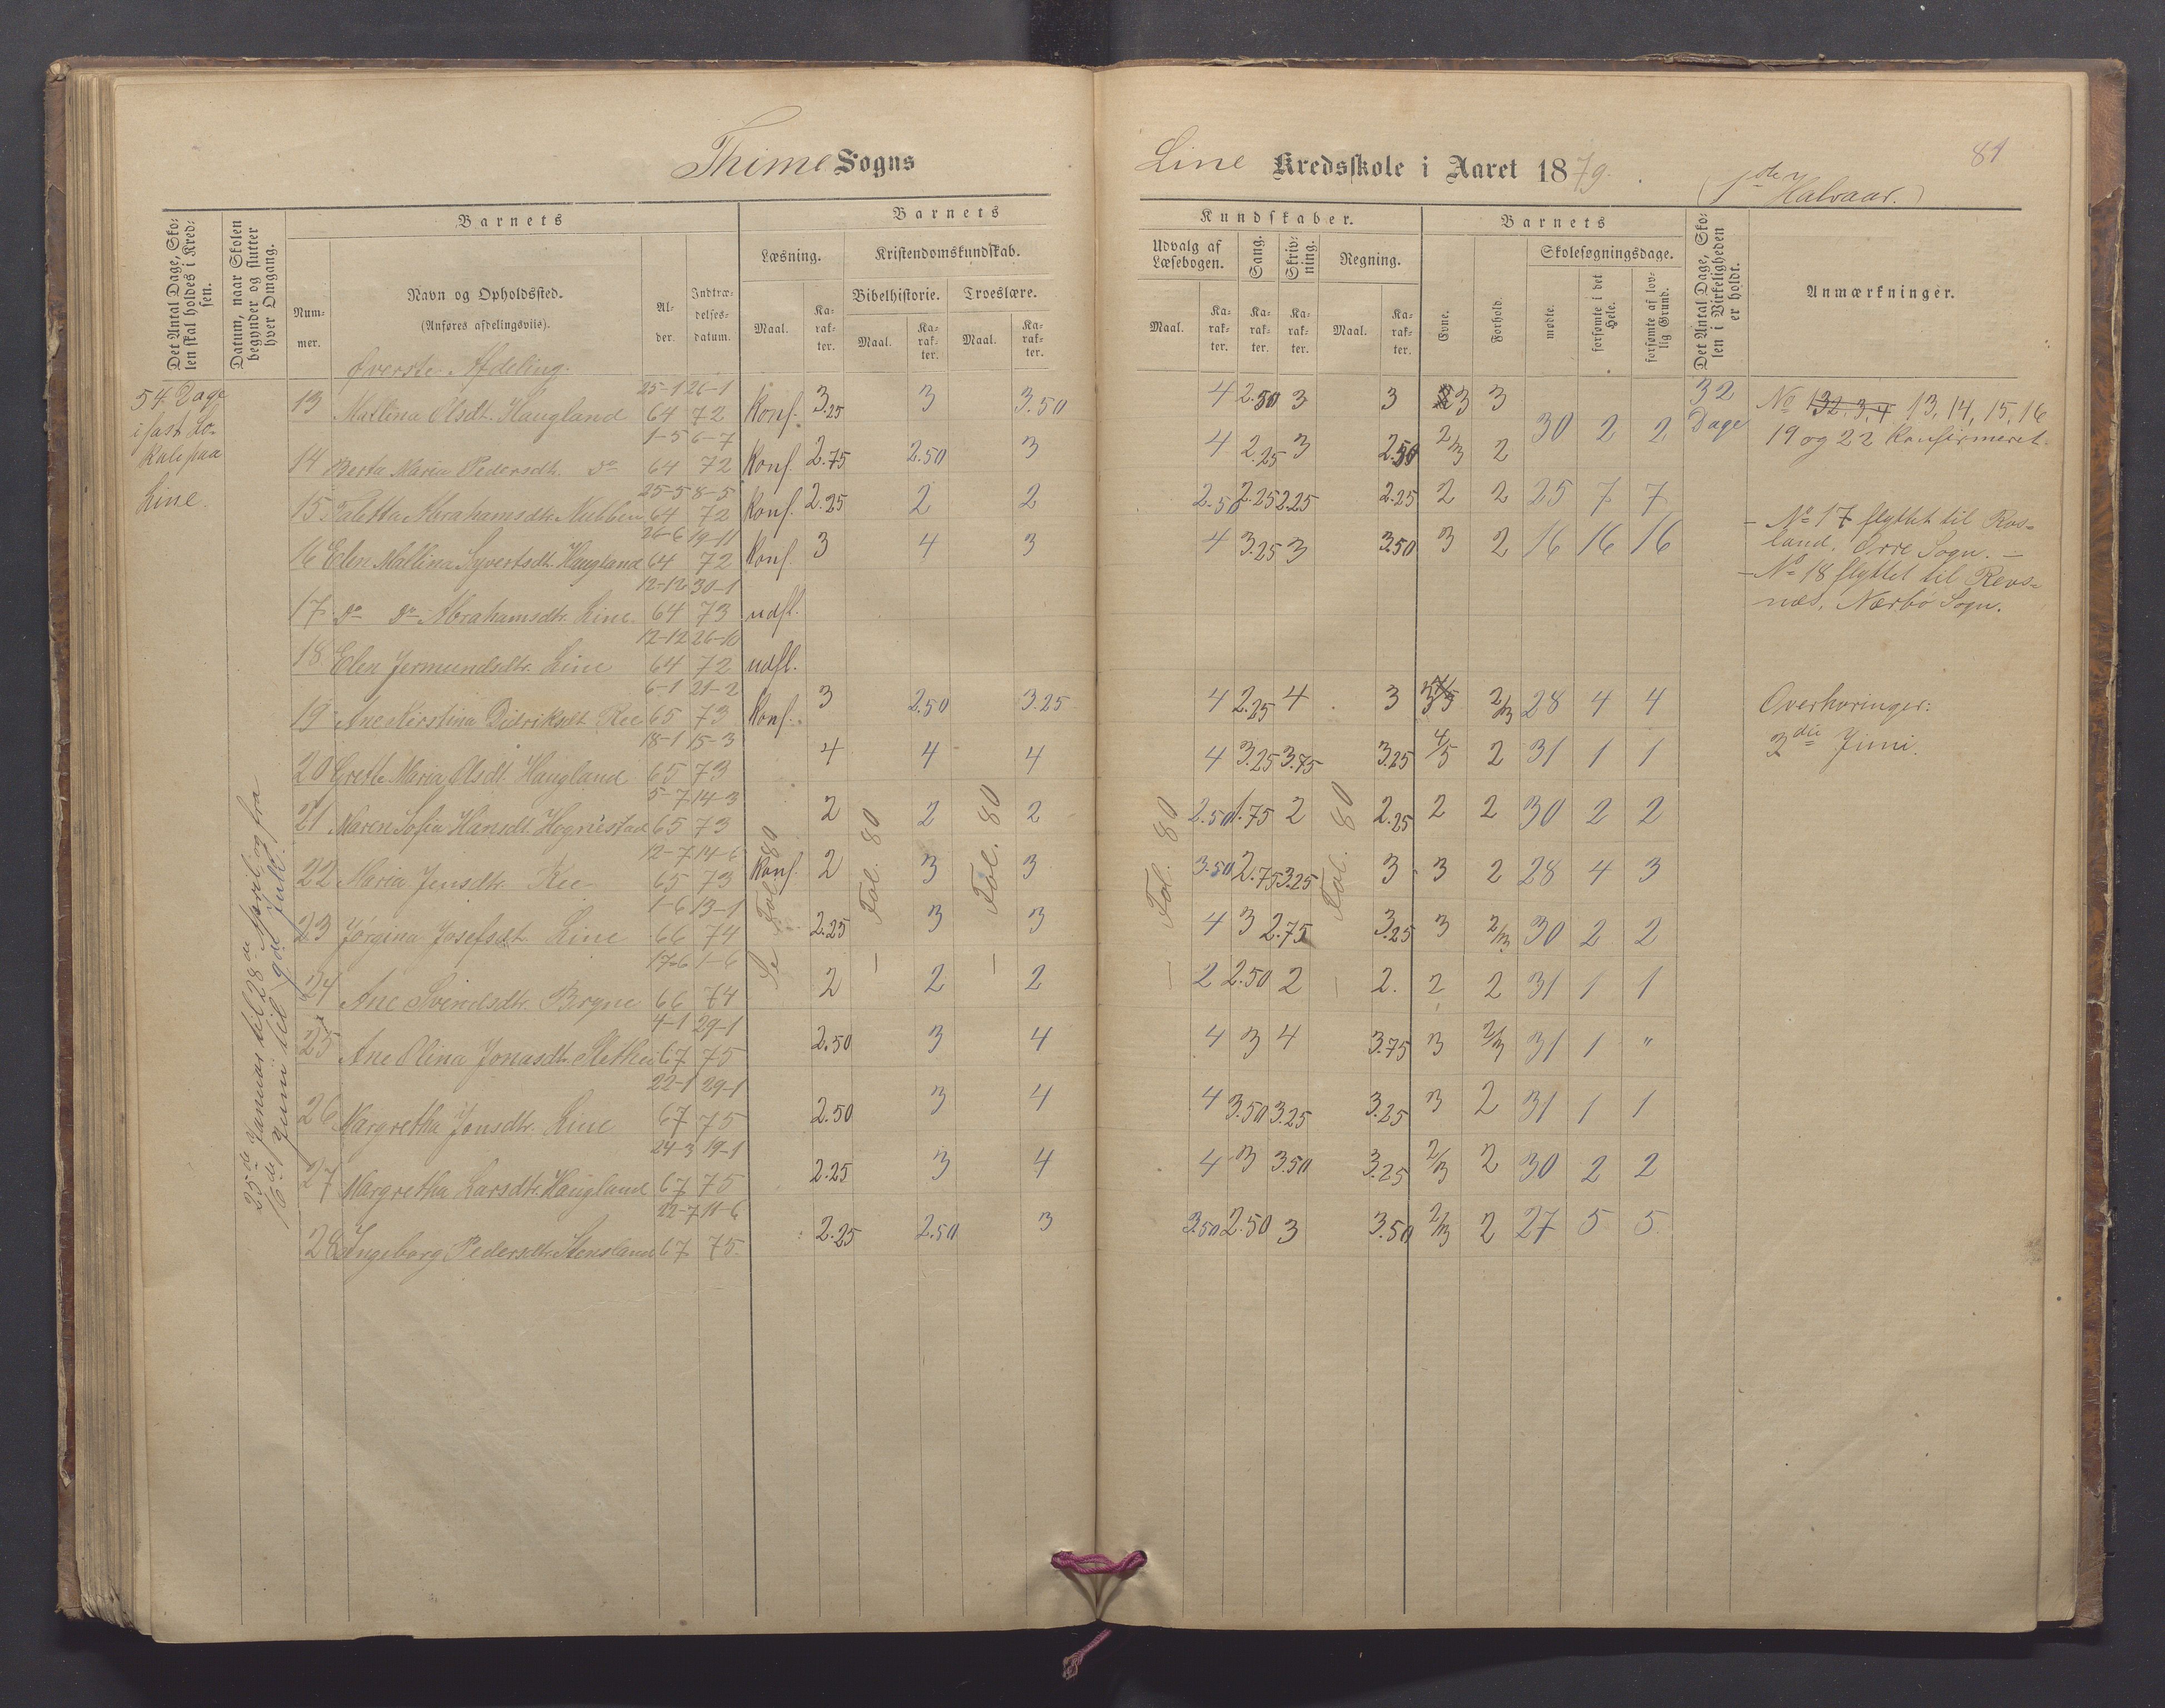 Thime Sogns
Line Kredsskole i Aaret 1879.
81
(1ste Halvaar.)
Det Antal Dage, Skolen skal holdes i Kredsen.
Datum, naar Skolen begynder og slutter hver Omgang.
Barnets
Nummer.
Navn og Opholdssted.
(Anføres afdelingsviis).
Alder.
Indtrædelsesdatum.
Barnets
Læsning.
Kristendomskundskab.
Bibelhistorie.
Troeslære.
Maal.
Karakter.
Maal.
Karakter.
Maal.
Karakter.
Kundskaber.
Udvalg af Læsebogen.
Sang.
Skrivning.
Regning.
Maal.
Karakter.
Karakter.
Karakter.
Maal.
Karakter.
Barnets
Evne.
Forhold.
Skolesøgningsdage.
mødte.
forsømte i det Hele.
forsømte af lovlig Grund.
Det Antal Dage, Skolen i Virkeligheden er holdt.
Anmærkninger.
Øverste Afdeling.
54 Dage
i fast Lo-
kale paa
Line.
25de Januar til 28de April og fra
16de Juni til 9de Juli.
13 Mallina Olsdt. Haugland 25-1 64 26-1 72 Konf. 3.25 3 3.50 4 2.50 3 3 3 3 30 2 2
14 Berta Maria Pedersdt. do 1-5 64 6-7 72 Konf. 2.75 2.50 3 4 2.25 3 2.50 2/3 2
15 Taletta Abrahamsdtr. Nubben 25-5 64 8-5 72 Konf. 2.25 2 2 2.50 2.25 2.25 2.25 2 2 25 7 7
16 Elen Mallina Syvertsdt. Haugland 26-6 64 19-11 72 Konf. 3 4 3 4 3.25 3 3.50 3 2 16 16 16
17 do do Abrahamsdtr. Line 12-12 64 30-1 73 udfl.
18 Elen Jermundsdtr. Line 12-12 64 26-10 72 udfl.
19 Ane Kirstina Didriksdt. Ree 6-1 65 21-2 73 Konf. 3 2.50 3.25 4 2.25 4 3 2/3 28 4 4
20 Grethe Maria Olsdt. Haugland 18-1 65 15-3 73 4 4 4 4 3.25 3.75 3.25 4/5 2 31 1 1
21 Maren Sofia Hansdt. Hognestad 5-7 65 14-3 73 2 2 2 2.50 1.75 2 2.25 2 2 30 2 2
22 Maria Jensdtr. Ree 12-7 65 14-6 73 Konf. 2 3 3 3.50 2.75 3.25 3 3 2 28 4 3
23 Jørgina Josefsdt. Line 1-6 66 13-1 74 2.25 3 3 4 3 2.75 3.25 3 2/3 30 2 2
24 Ane Svendsdtr. Bryne 17-6 66 1-6 74 2 2 2 2 2.50 2 2. 2 2 31 1 1
25 Ane Olina Jonasdt. Slethei 4-1 67 29-1 75 2.50 3 4 4 3 4 3.75 3 2/3 31 1 "
26 Margretha Jonsdtr. Line 22-1 67 29-1 75 2.50 3 4 4 3.50 3.25 3.25 3 2 31 1 1
27 Margretha Larsdtr. Haugland 24-3 67 19-1 75 2.25 3 4 4 3 3.50 3.25 2/3 2 30 2 2
28 Ingeborg Pedersdtr. Stensland 22-7 67 11-6 75 2.25 2.50 3 3.50 2.50 3 3.50 2/3 2 27 5 5
Se Fol. 80
— Fol. 80
— Fol. 80
— Fol. 80
— Fol. 80
32
Dage
No 132.3.4 13, 14, 15, 16
19 og 22 Konfirmeret.
- No 17 flyttet til Ros-
land. Orre Sogn. -
- No 18 flyttet til Revs-
næs, Nærbø Sogn.
Overhøringer:
3die Juni.